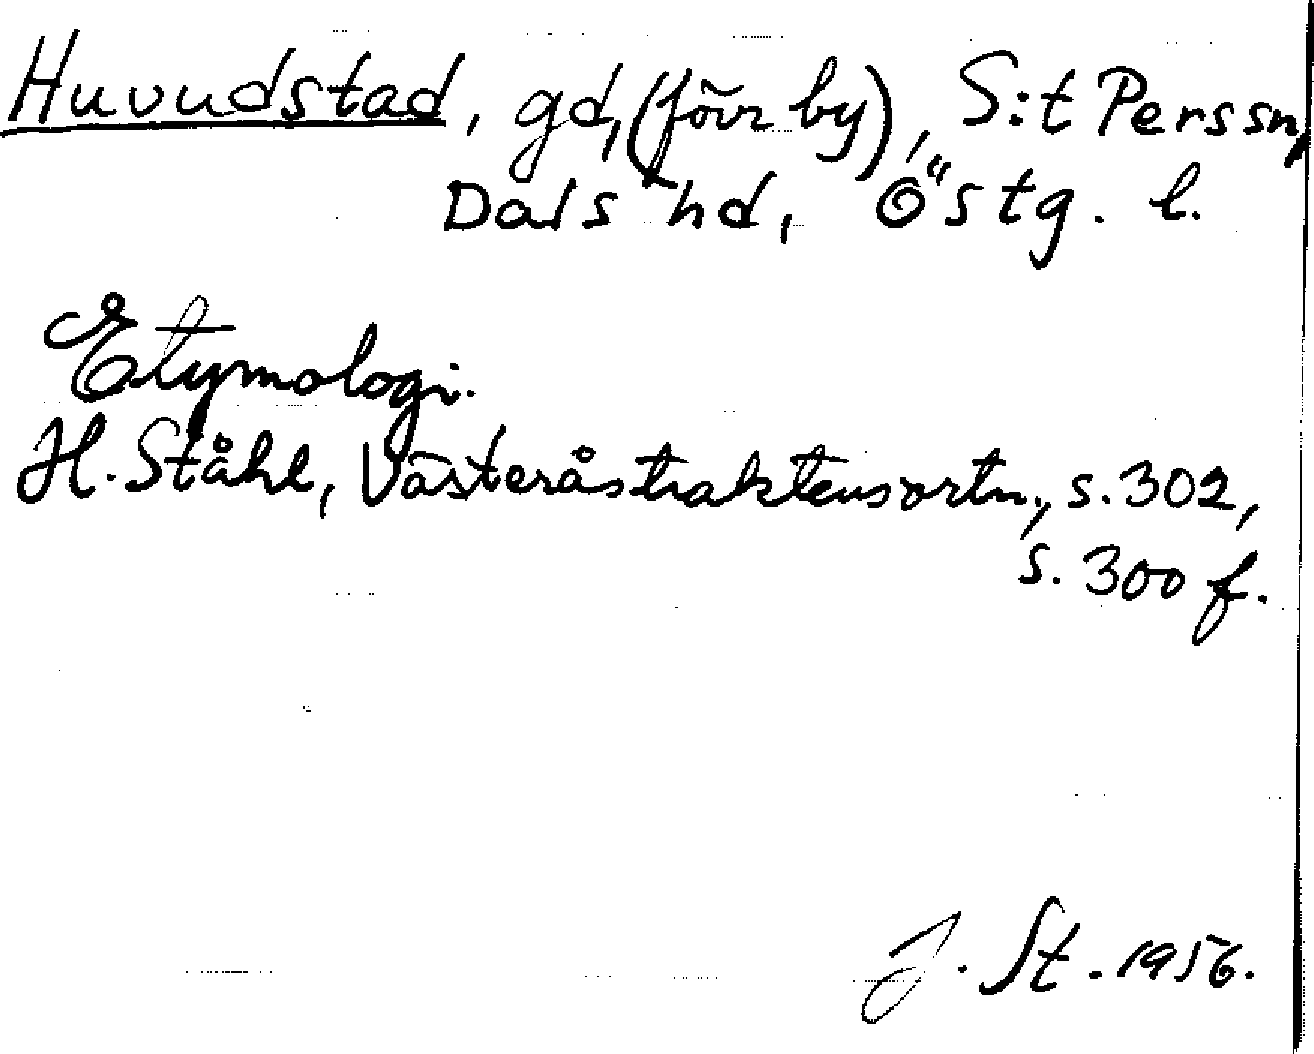 Huvudstad, gd, (förr by), S:t Perssn,
Dals hd, Östg. l.
Etymologi.
H. Ståhl, Västeråstraktensortn., s. 302,
s. 300 f.
J. St. 1956.